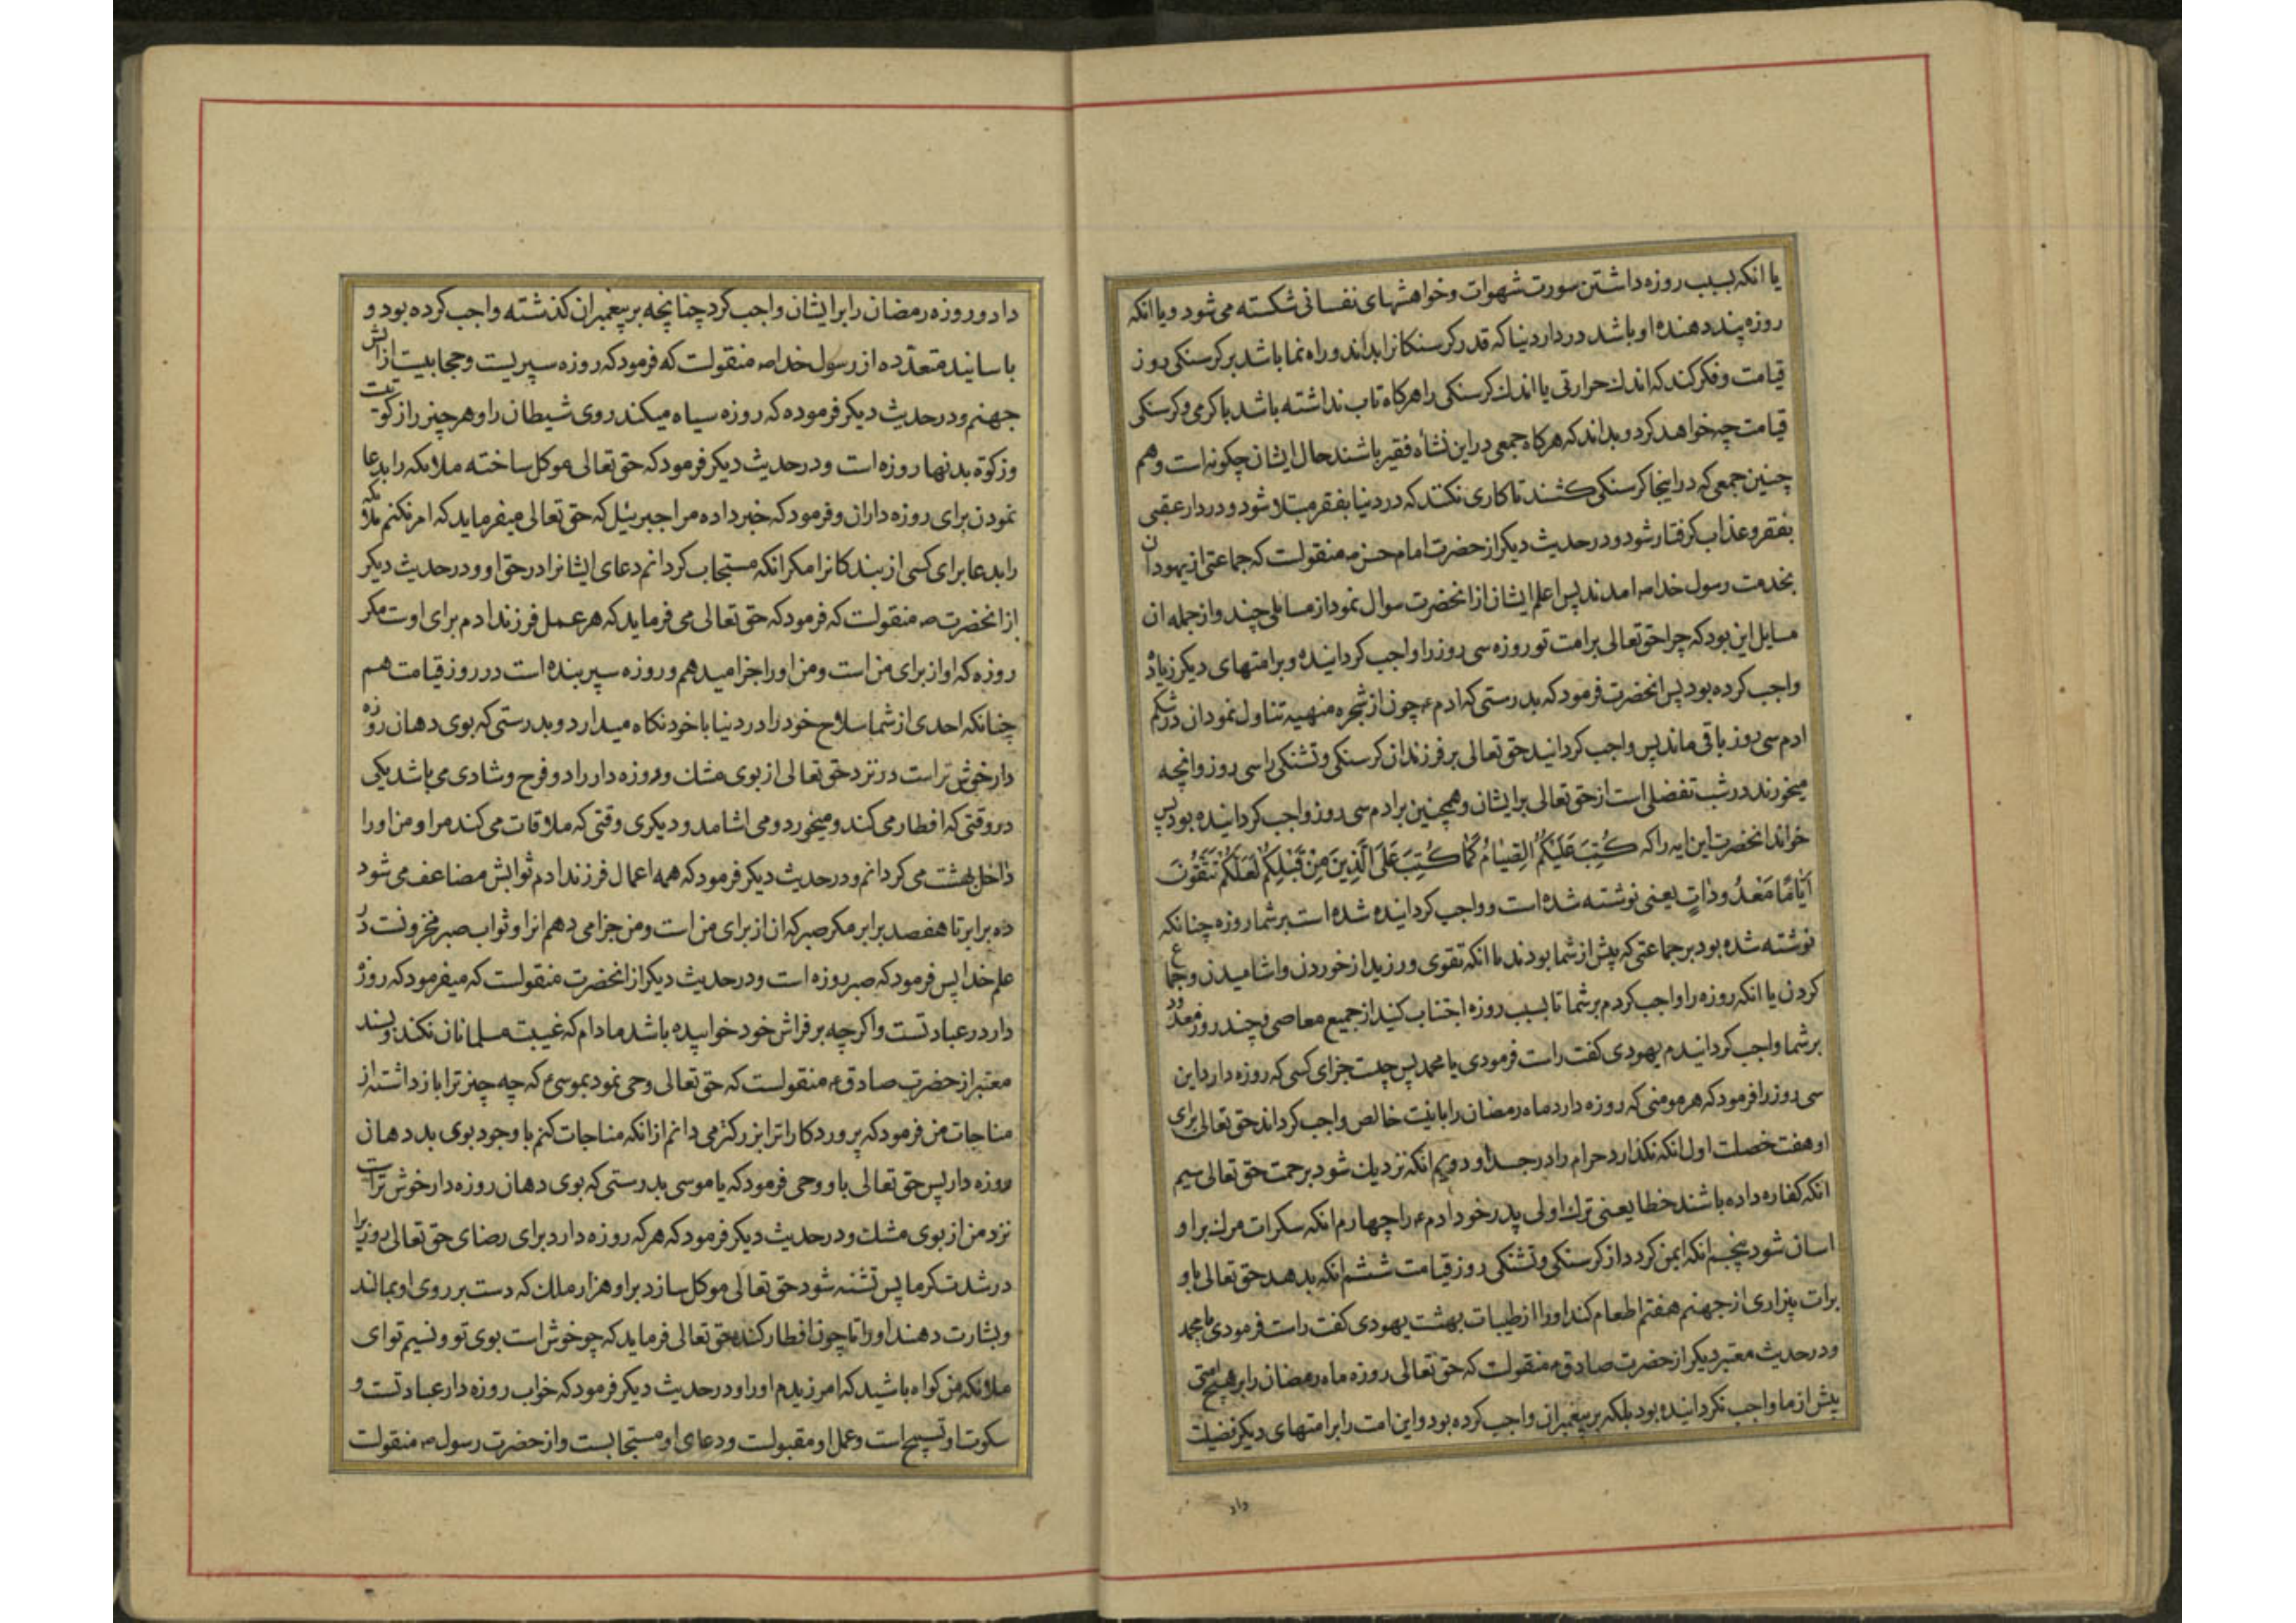 یا انکه بسبب روزه داشتن سورت شهوات و خواهشهای نفسانی شکسته می شود و یا انکه
روزه پند دهندۀ او باشد در دار دنیا که قدر کرسنکانرا بداند و راه نما باشد بر کرسنکی روز
قیامت و فکر کند که اندك حرارتی یا اندك کرسنکی را هرکاه تاب نداشته باشد با کرمی و کرسنکی
قیامت چه خواهد کرد و بداند که هرکاه جمعی در این نشأه فقیر باشند حال ایشان چکونه است و هم
چنین جمعی که در اینجا کرسنکی کشند تا کاری نکنند که در دنیا بفقر مبتلا شود و در دار عقبی
بفقر و عذاب کرفتار شود و در حدیث دیکر از حضرت امام حسن ع منقولست که جماعتی از یهودان
بخدمت رسول خدا ص امدند پس اعلم ایشان از انحضرت سوال نمود از مسایلی چند و از جمله ان
مسایل این بود که چرا حق تعالی بر امت تو روزه سی روز را واجب کردانیده و بر امتهای دیکر زیاده
واجب کرده بود پس انحضرت فرمود که بدرستی که ادم ع چون از شجره منهیه تناول نمود ان در شکم
ادم سی روز باقی ماند پس واجب کردانید حق تعالی بر فرزندان کرسنکی و تشنکی را سی روز و انچه
میخورند در شب تفضلی است از حق تعالی بر ایشان و همچنین بر ادم سی روز واجب کردانیده بود پس
خواند انحضرت این ایه را که كُتِبَ عَلَيْكُمُ الصِّيٰامُ كَمٰا كُتِبَ عَلَى الَّذِينَ مِنْ قَبْلِكُمْ لَعَلَّكُمْ تَتَّقُونَ
أَيّٰامًا مَعْدُودٰاتٍ یعنی نوشته شده است و واجب کردانیده شده است بر شما روزه چنانکه
نوشته شده بود بر جماعتی که پیش از شما بودند تا انکه تقوی ورزید از خوردن و اشامیدن و جماع
کردن یا انکه روزه را واجب کردم بر شما تا بسبب روزه اجتناب کنید از جمیع معاصی و چند روز معدود
بر شما واجب کردانیدم یهودی کفت راست فرمودی یا محمد پس چیست جزای کسی که روزه دارد این
سی روز را فرمود که هر مومنی که روزه دارد ماه رمضان را با نیت خالص واجب کرداند حق تعالی برای
او هفت خصلت اول انکه نکذارد حرام را در جسد او دویم انکه نزدیك شود برحمت حق تعالی سیم
انکه کفاره داده باشند خطا یعنی ترك اولی پدر خود ادم ع را چهارم انکه سکرات مرك بر او
اسان شود پنجم انکه ایمن کردد از کرسنکی و تشنکی روز قیامت ششم انکه بدهد حق تعالی باو
برات بیزاری از جهنم هفتم اطعام کند او را از طیبات بهشت یهودی کفت راست فرمودی یا محمد
و در حدیث معتبر دیکر از حضرت صادق ع منقولست که حق تعالی روزه ماه رمضان را بر هیچ امتی
پیش از ما واجب نکردانیده بود بلکه بر پیغمبران واجب کرده بود و این امت را بر امتهای دیکر فضیلت
داد
داد و روزه رمضان را بر ایشان واجب کرد چنانچه بر پیغمبران کذشته واجب کرده بود و
باسانید متعدّده از رسول خدا ص منقولست که فرمود که روزه سپریست و حجابیست از اتش
جهنم و در حدیث دیکر فرموده که روزه سیاه میکند روی شیطان را و هر چیز را زکوتیست
و زکوة بدنها روزه است و در حدیث دیکر فرمود که حق تعالی موکل ساخته ملائکه را بدعا
نمودن برای روزه داران و فرمود که خبر داده مرا جبرئیل که حق تعالی میفرماید که امر نکنم ملائکه
را بدعا برای کسی از بندکانرا مکر انکه مستجاب کردانم دعای ایشانرا در حق او و در حدیث دیکر
از انحضرت ص منقولست که فرمود که حق تعالی می فرماید که هر عمل فرزند ادم برای اوست مکر
روزه که او از برای من است و من او را جزا میدهم و روزه سپر بنده است در روز قیامت هم
چنانکه احدی از شما سلاح خود را در دنیا با خود نکاه میدارد و بدرستی که بوی دهان روزه
دار خوش تر است در نزد حق تعالی از بوی مشك و روزه دار را دو فرح و شادی می باشد یکی
در وقتی که افطار می کند و میخورد و می اشامد و دیکری وقتی که ملاقات می کند مرا و من او را
داخل بهشت می کردانم و در حدیث دیکر فرمود که همه اعمال فرزند ادم ثوابش مضاعف می شود
ده برابر تا هفصد برابر مکر صبر که ان از برای من است و من جزا می دهم انرا و ثواب صبر مخزونست در
علم خدا پس فرمود که صبر روزه است و در حدیث دیکر از انحضرت منقولست که میفرمود که روزه
دار در عبادتست و اکر چه بر فراش خود خوابیده باشد مادام که غیبت مسلمانان نکند و بسند
معتبر از حضرت صادق ع منقولست که حق تعالی وحی نمود بموسی ع که چه چیز ترا باز داشته از
مناجات من فرمود که پروردکارا ترا بزرکتر می دانم از انکه مناجات کنم با وجود بوی بد دهان
روزه دار پس حق تعالی باو وحی فرمود که یا موسی بدرستی که بوی دهان روزه دار خوش تر است
نزد من از بوی مشك و در حدیث دیکر فرمود که هر که روزه دارد برای رضای حق تعالی روزیرا
در شدت کرما پس تشنه شود حق تعالی موکل سازد بر او هزار ملك که دست بر روی او بمالند
و بشارت دهند او را تا چون افطار کند حق تعالی فرماید که چو خوش است بوی تو و نسیم تو ای
ملائکه من کواه باشید که امرزیدم او را و در حدیث دیکر فرمود که خواب روزه دار عبادتست و
سکوت او تسبیح است و عمل او مقبولست و دعای او مستجابست و از حضرت رسول ص منقولست